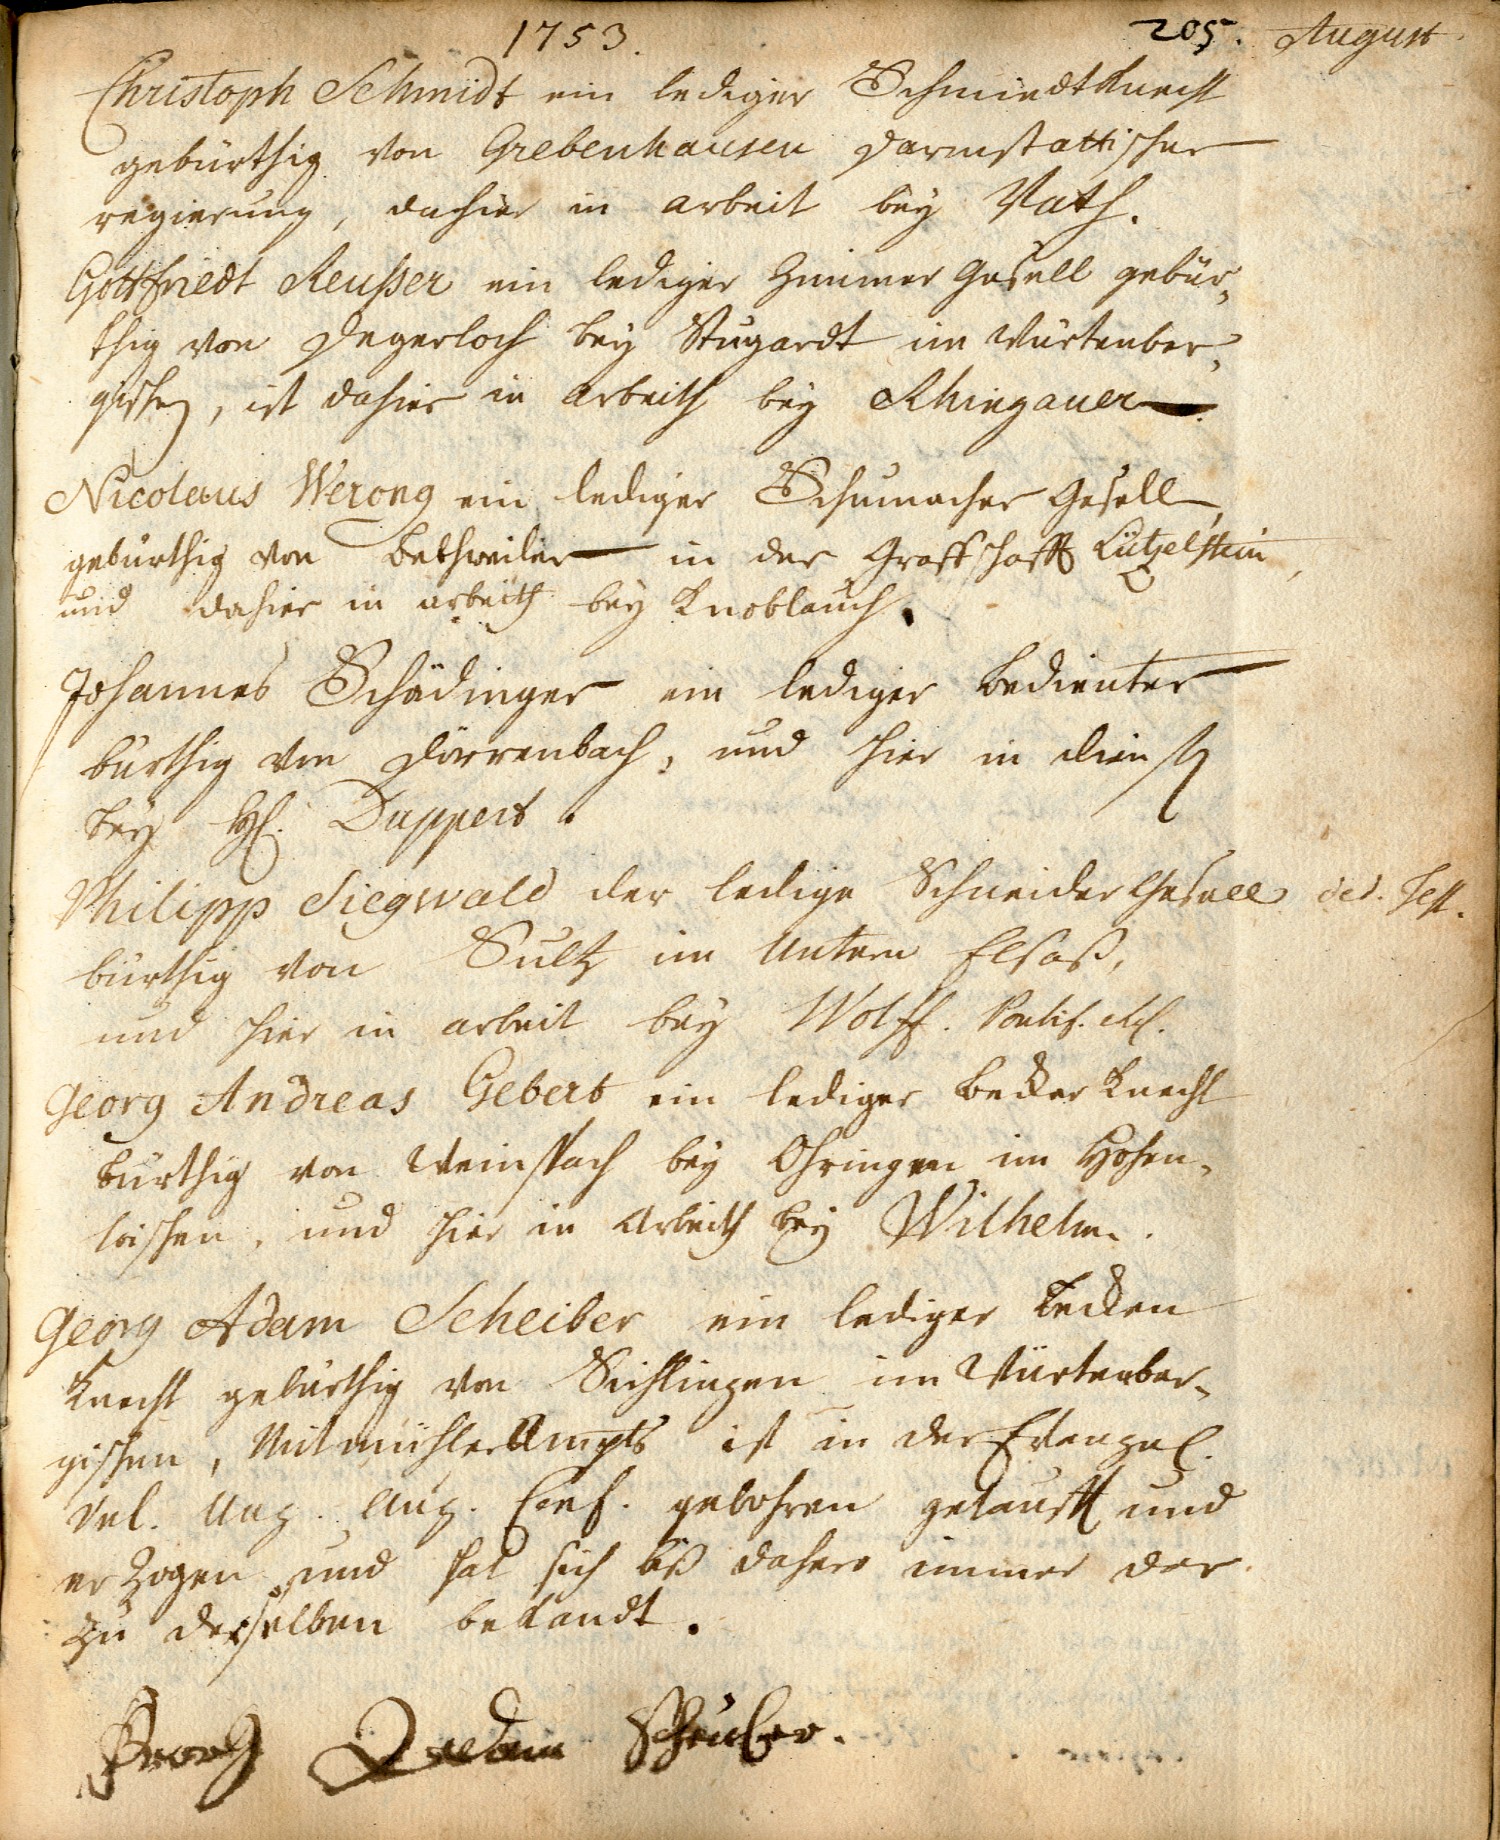 1753.
205. August
Christoph Schmidt ein lediger Schmiedtknecht
gebürthig von Grebenhausen Darmstattischer
regierung, dahier in arbeit bey Vath.
Gottfriedt Reußer ein lediger Zimmer Gesell gebür-
thig von Degerloch bey Stugardt im Würtenber-
gischen, ist dahier in Arbeith bey Rhingauer
Nicolaus Werong ein lediger Schumacher Gesell,
gebürthig von Betschweiler in der Graffschafft Lützelstein,
und dahier in arbeith bey Knoblauch.
Johannes Schädinger ein lediger Bedienter
bürthig von Dörrenbach, und hier in Diensten
bey H. Duppert.
Philipp Siegwald der ledige Schneider Gesell ded. Test.
bürthig von Sultz im Untern Elsaß,
und hier in arbeit bey Wolff.
Georg Andreas Gebert ein lediger Becker Knecht
bürthig von Weinspach bey Ohringen im Hohen-
loischen, und hier in Arbeith bey Wilhelm.
Georg Adam Scheiber ein lediger Becken
Knecht gebürthig von im Würtenber-
gischen, Ampts ist in der Evangel.
Conf. gebohren getaufft und
erzogen und hat sich biß dahero immer der
zu derselben bekandt.
Georg Adam Scheiber.